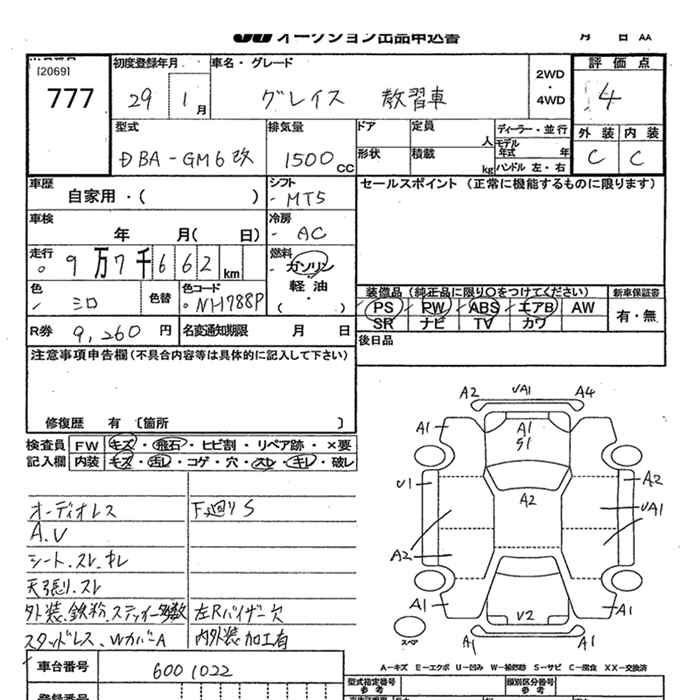 オークション出品申込書 月 日 AA
[2069]
777
初度登録年月 29 1月
車名・グレード
グレイス 教習車
2WD・4WD
評価点
4
外装 内装
C C
型式
DBA-GM6改
排気量
1500cc
ドア 定員 人
形状 積載 kg
ディーラー・並行
モデル年式 年
ハンドル 左・右
車歴
自家用・( )
シフト
MT5
セールスポイント (正常に機能するものに限ります)
車検
年 月( 日)
冷房
AC
走行
9万7千662km
燃料
ガソリン
軽油
( ・ )
色
シロ
色替
色コード
NH788P
装備品 (純正品に限り○をつけてください)
PS PW ABS エアB AW
SR ナビ TV カワ
新車保証書
有・無
R券 9,260円
名変通知期限 月 日
後日品
注意事項申告欄(不具合内容等は具体的に記入して下さい)
修復歴 有 [箇所 ]
検査員記入欄
FW キズ・飛石・ヒビ割・リペア跡・×要
内装 キズ・汚レ・コゲ・穴・スレ・キレ・破レ
オーディオレス
A.V
シート.スレ.キレ
天張り.スレ
外装.鉄粉.ステッカー多数
スタッドレス、WカバーA
下廻りS
左Rバイザー欠
内外装加工有
A2 UA1 A4
A1 A1 A1
G1
U1 A2 A2
UA1
A2
A1 U2 A1
スペア A1 A1
A-キズ E-エクボ U-凹み W-補修跡 S-サビ C-腐食 XX-交換済
車台番号 6001022
登録番号
型式指定番号 参考
類別区分番号 参考